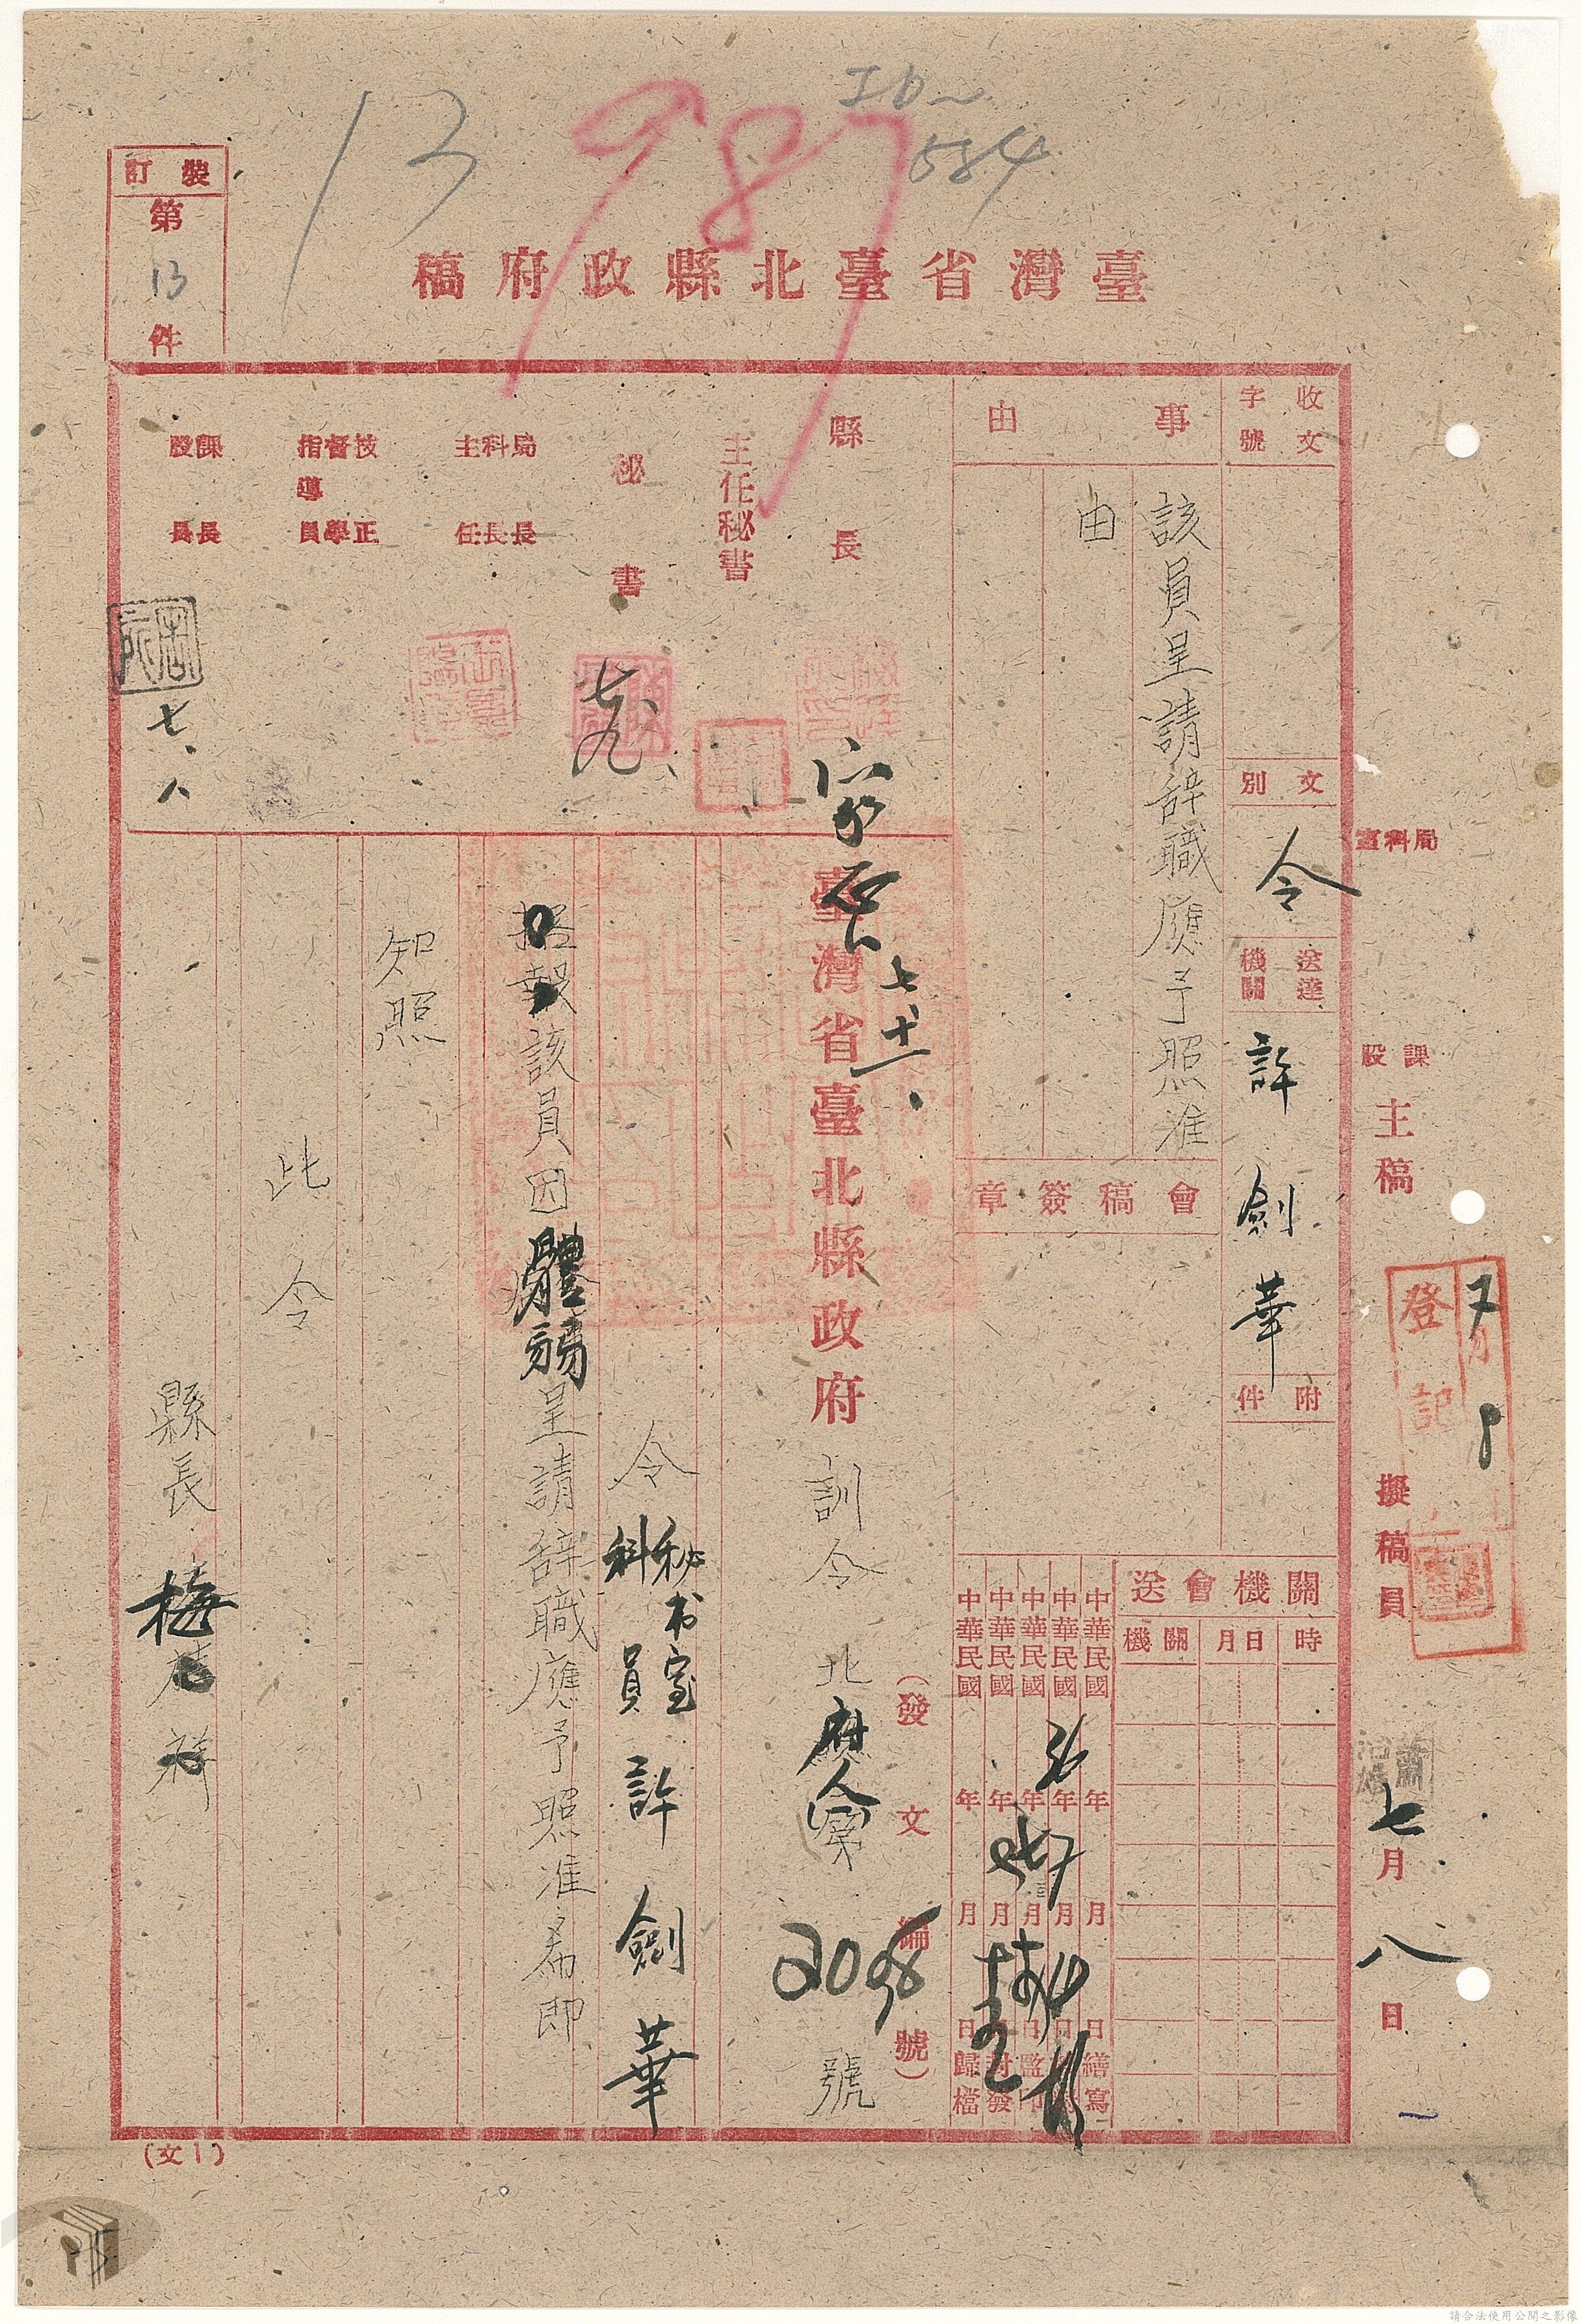 13
987
584
裝訂
第
13
件
臺灣省臺北縣政府稿
局科室
課股
主稿
擬稿員
七月八日
登記
收文
字號
文別
令
送達機關
許劍華
附件
事由
該員呈請辞職應予照准
由
會稿簽章
關機會送
時
月日
關機
中華民國 年 月 日繕寫
中華民國 36年 月 日
中華民國 年 月 日監印
中華民國 年 月 日封發
中華民國 年 月 日歸檔
縣長
主任秘書
秘書
局科主
長長任
技督指導
正學員
課股
長員
七、十一、
七.八
臺灣省臺北縣政府訓令
(發文編號)
北府人 2098 號
令秘书室科員許劍華
據報該員因體弱呈請辞職應予照准希即
知照
此令
縣長 梅
(文1)
請合法使用公開之影像